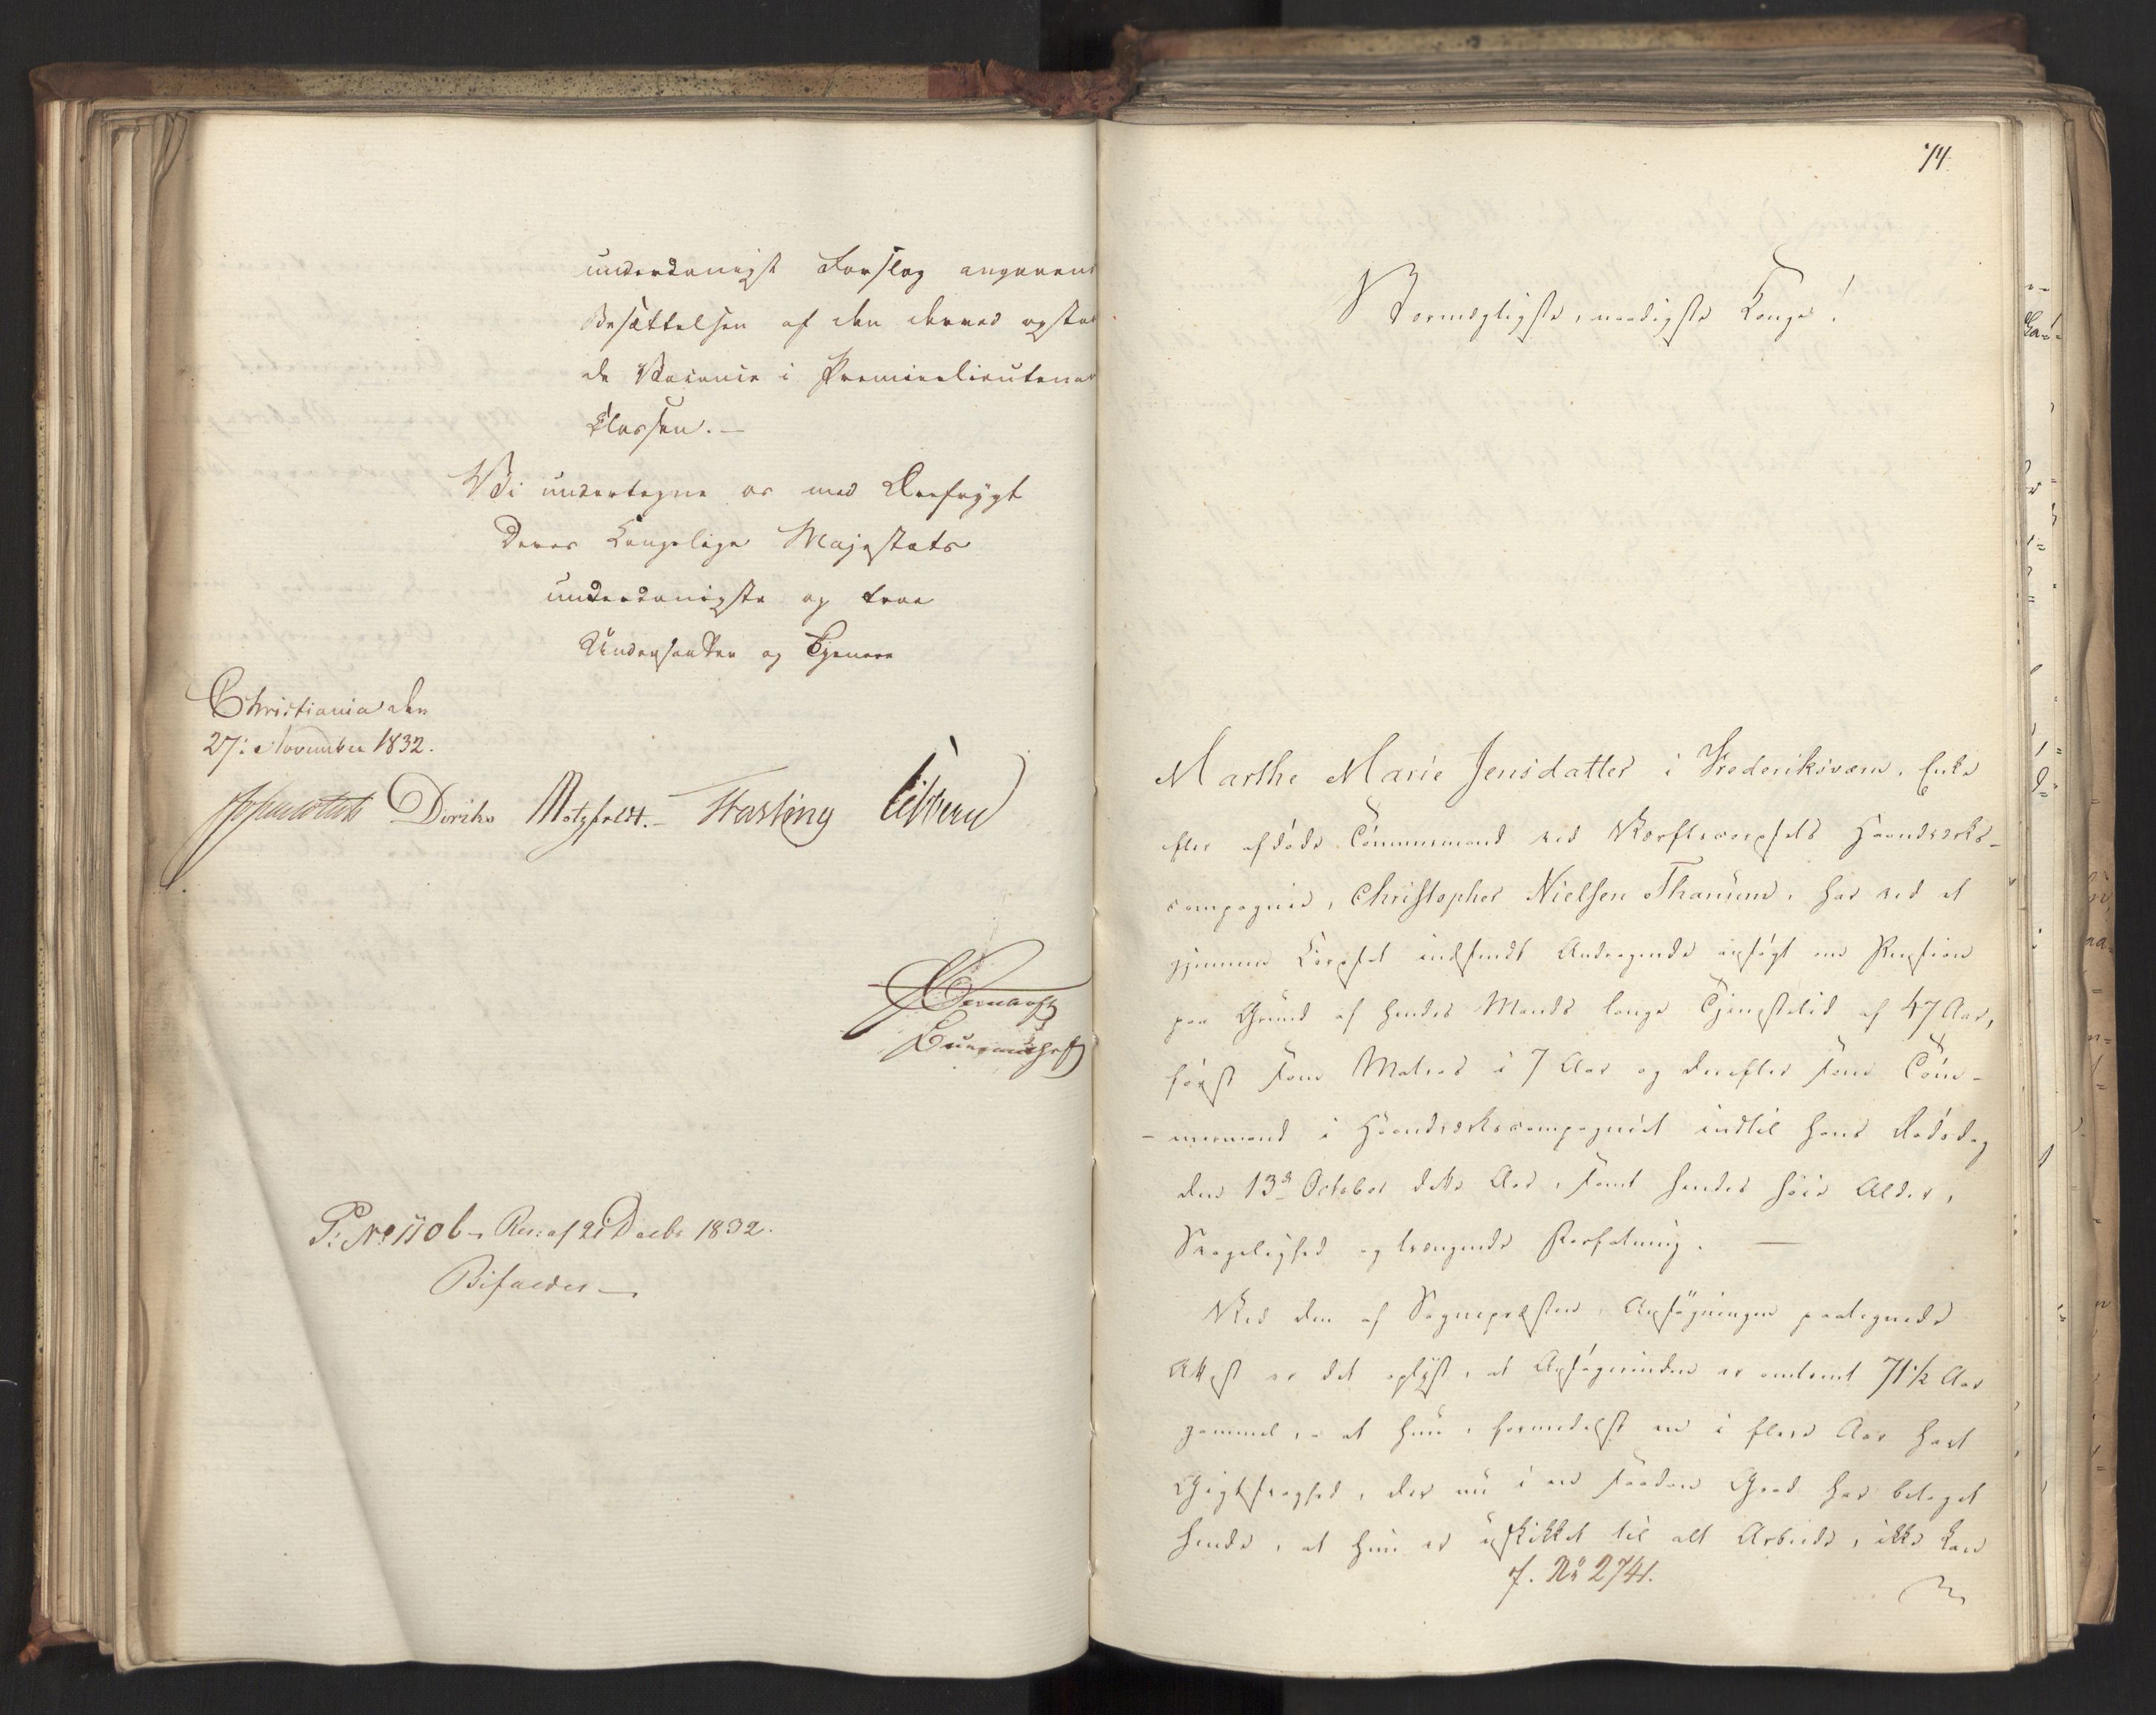 underdanigst Forslag angaaend
Besættelsen af den derved opstaa
de Vacance i Premierlieutenant
Classen. —
Vi undertegne os med Ærefrygt
Deres Kongelige Majestæts
underdanigste og troe
Undersaatter og Tjenere
Christiania den
27: November 1832.
Diriks Motzfeldt. Fasting
P: No 1106 - Res: af 21 Decbr 1832.
Bifaldes
74.
Stormægtigste, naadigste Konge!
Marthe Marie Jensdatter i Frederiksværn, Enke
efter afdøde Tømmermand ved Værftscorpsets Haandværks-
compagnie, Christopher Nielsen Thanum, har ved et
gjennem Corpset indsendt Andragende ansøgt om Pension
paa Grund af hendes Mands lange Tjenestetid af 47 Aar,
først som Matros i 7 Aar og derefter som Töm-
-mermand i Haandværkscompagniet indtil hans Dødsdag
den 13de October dette Aar, samt hendes høie Alder,
Svagelighed og trængende Forfatning. —
Ved den af Sognepræsten Ansøgningen paategnede
Attest er det oplyst, at Ansøgerinden er omtrent 71½ Aar
gammel, - at hun, formedelst en i flere Aar havt
Gigtsvaghed, der nu i en saadan Grad har betaget
hende, at hun er uskikket til alt Arbeide, ikke kan
J. No 2741.